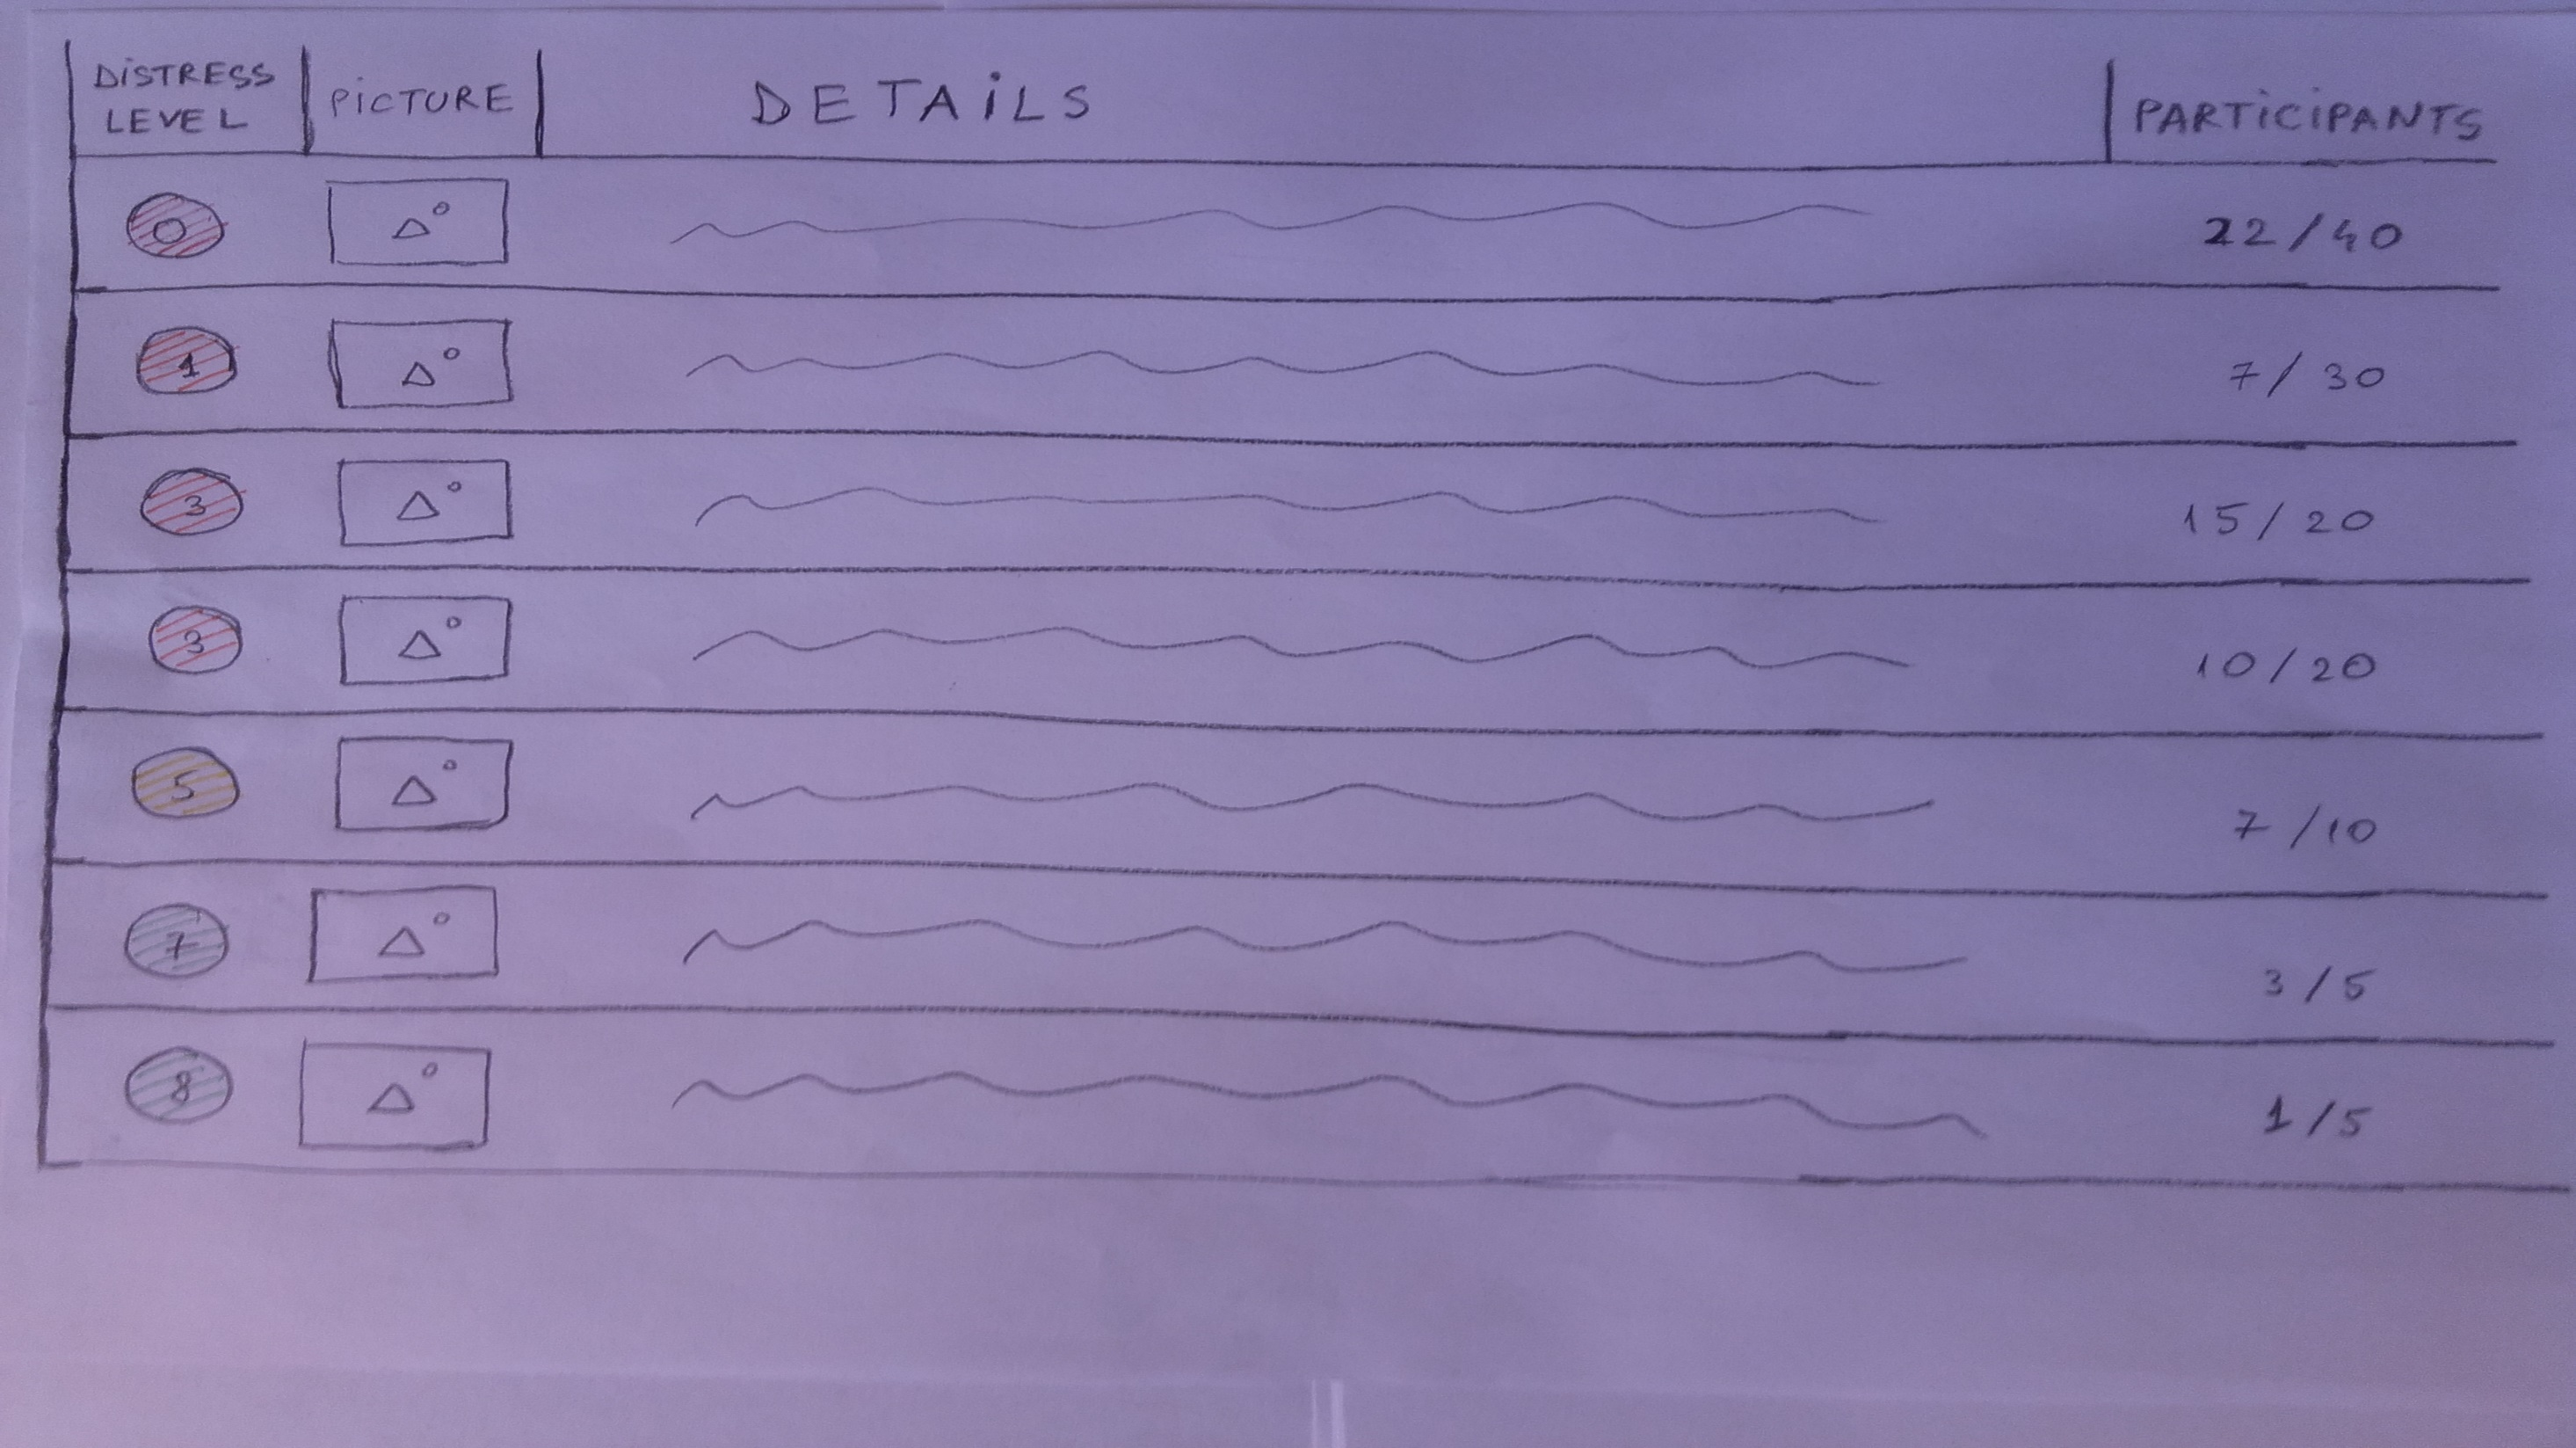 DiSTRESS LEVEL PiCTURE DETAiLS PARTiCiPANTS
0 22/40
1 7/30
3 15/20
3 10/20
5 7/10
7 3/5
8 1/5